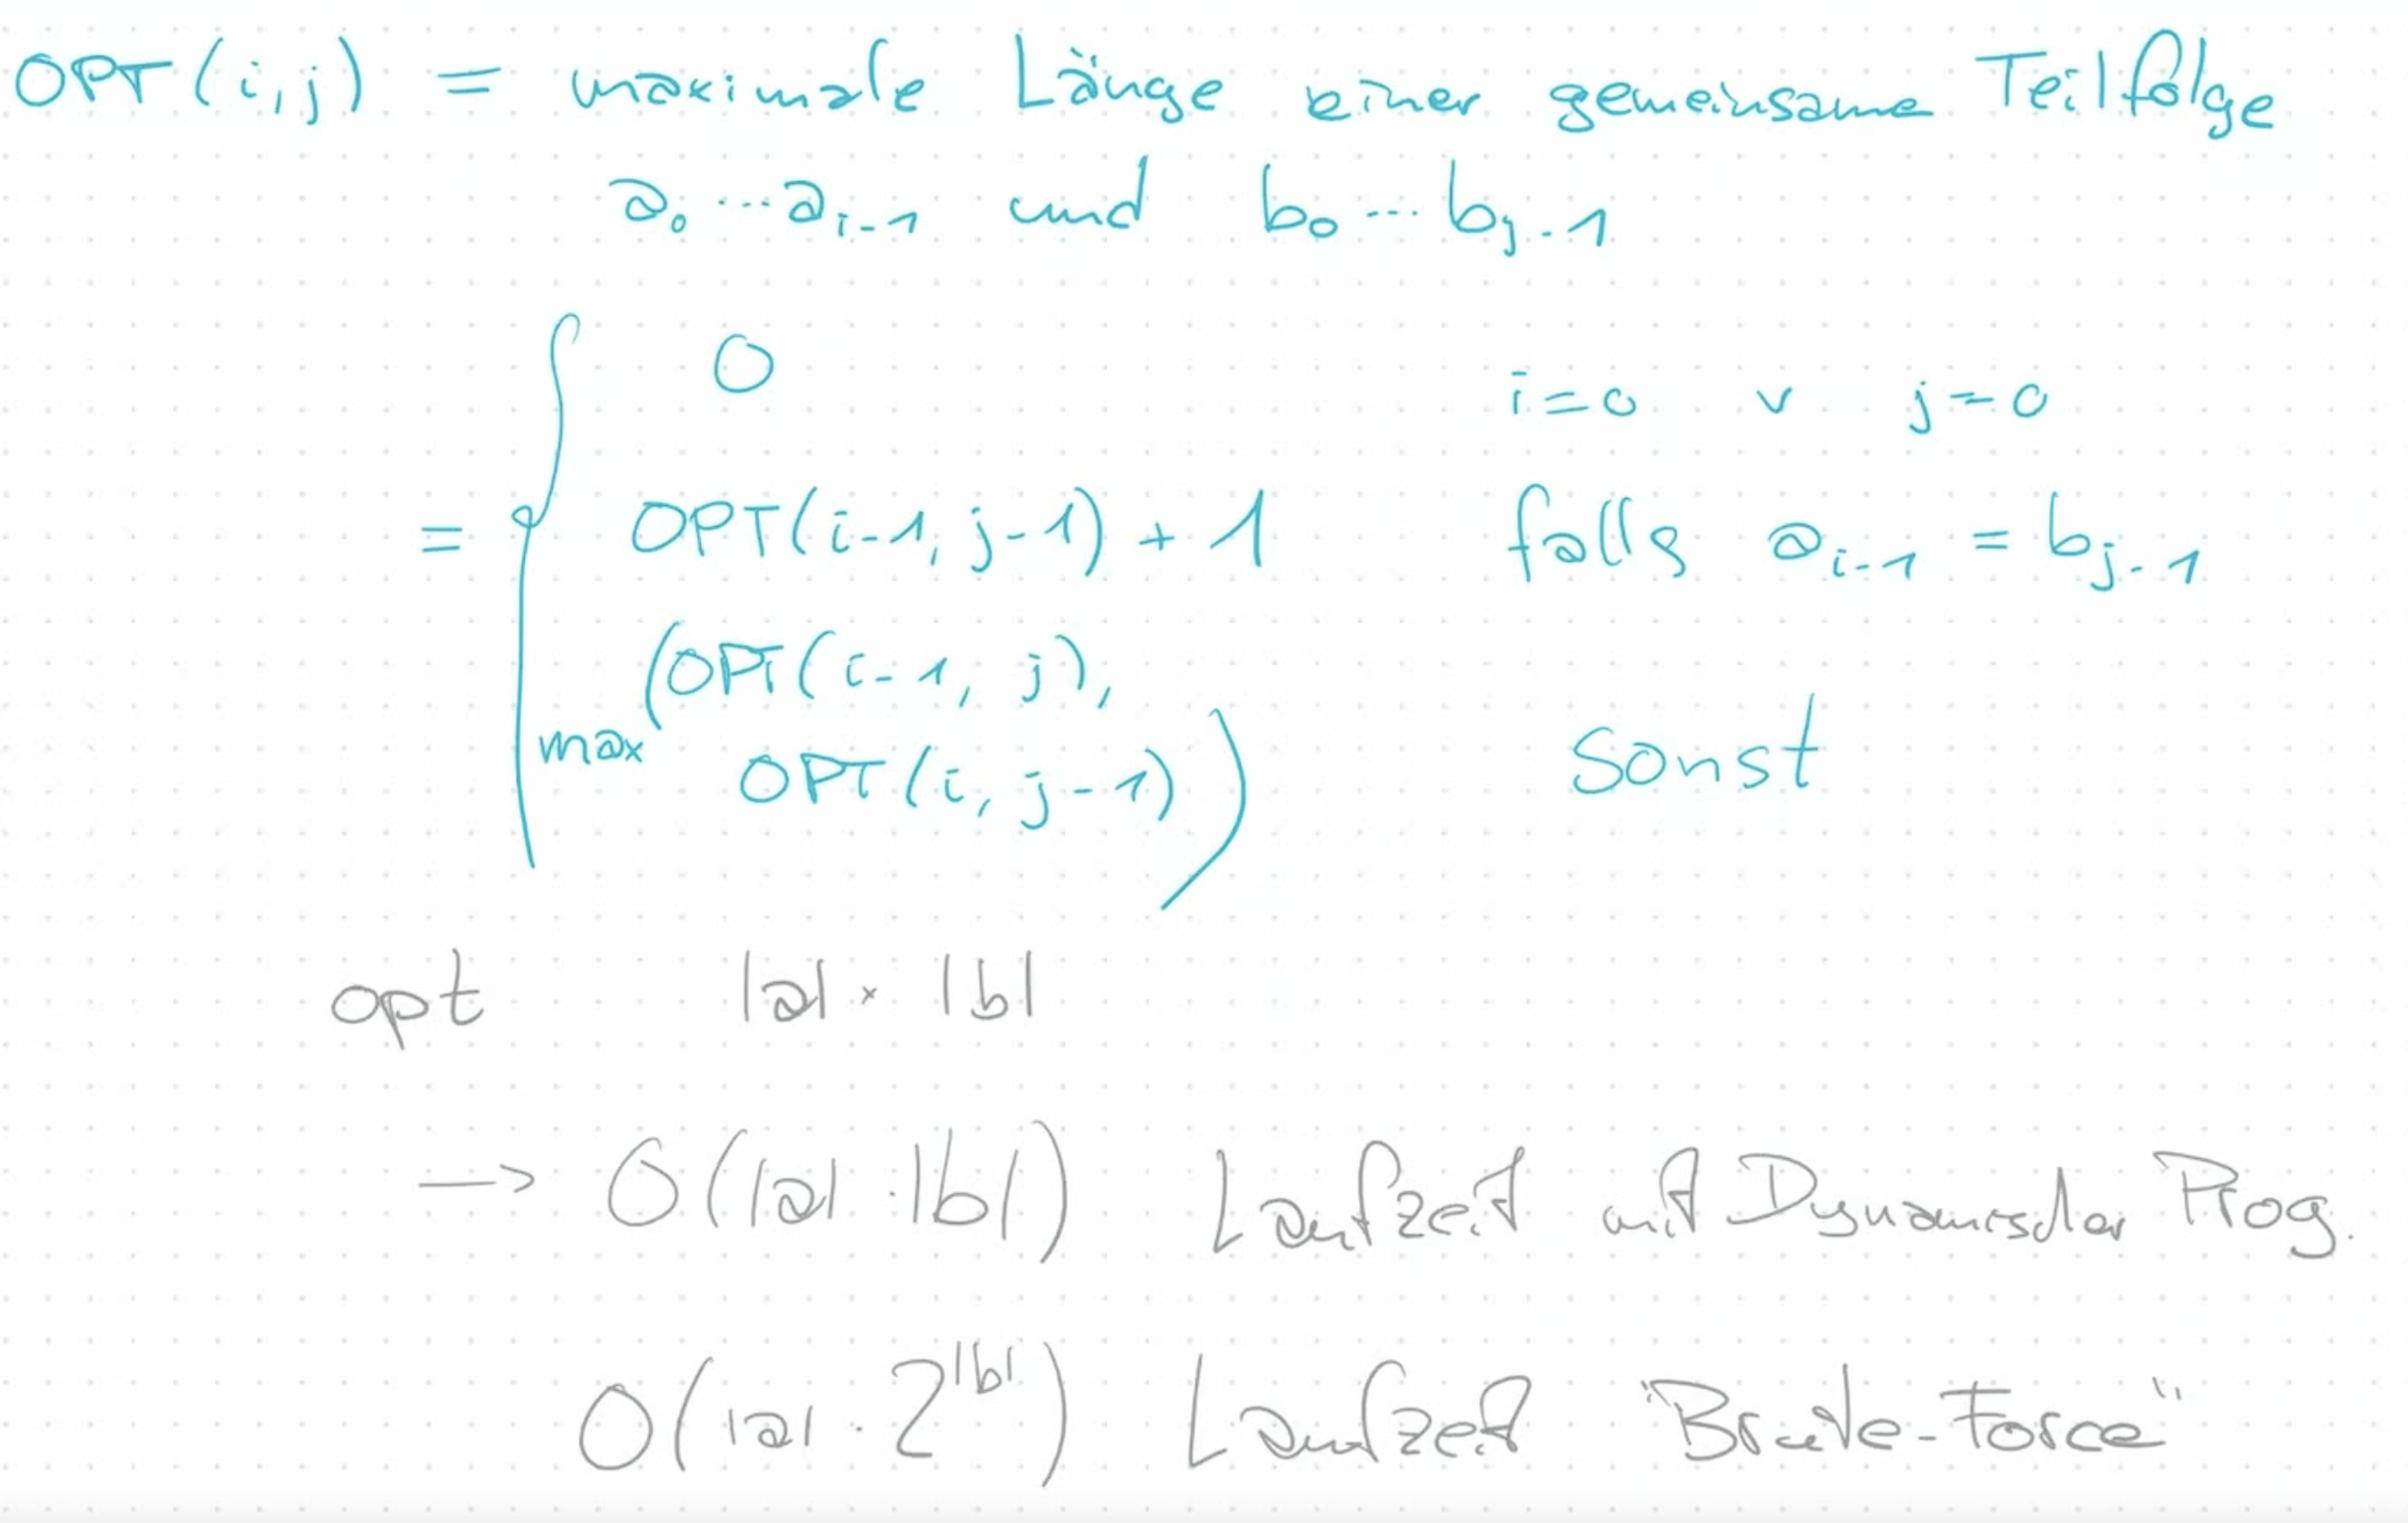 OPT(i,j) = maximale Länge einer gemeinsame Teilfolge
a₀ ... aᵢ₋₁ und b₀ ... bⱼ₋₁
0 i=0 ∨ j=0
= { OPT(i-1, j-1) + 1 falls aᵢ₋₁ = bⱼ₋₁
(OPT(i-1, j),
max sonst
OPT(i, j-1))
opt |a| × |b|
→ O(|a|·|b|) Laufzeit mit Dynamischer Prog.
O(|a|·2^|b|) Laufzeit "Brute-Force"